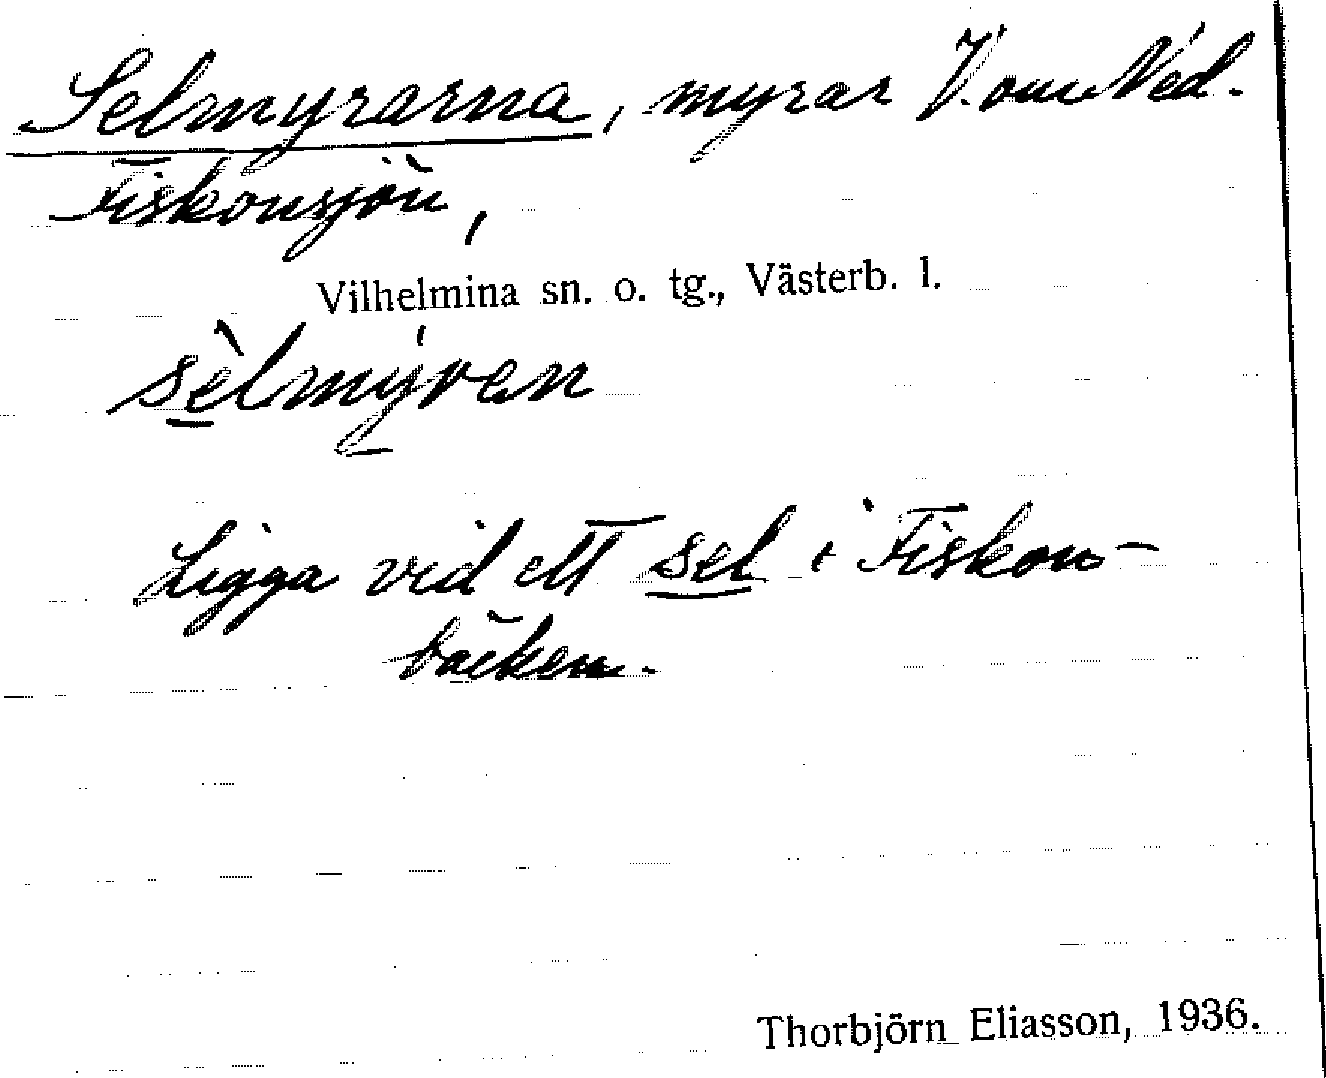 Selmyrarna, myrar V. om Ned.
Fiskonsjön,
Vilhelmina sn. o. tg., Västerb. l.
sèlmýren
Ligga vid ett sel i Fiskon-
bäcken.
Thorbjörn Eliasson, 1936.